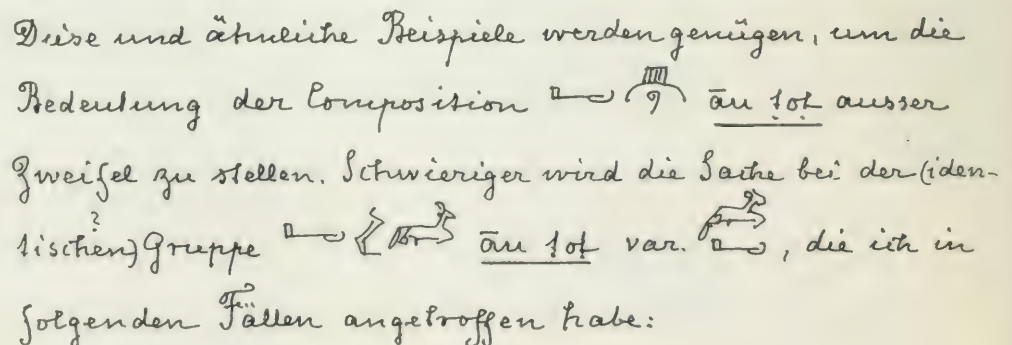 Diese und ähnliche Beispiele werden genügen, um die
Bedeutung der Composition āu ausser
Zweifel zu stellen. Schwieriger wird die Sache bei der (iden-
tischen?) Gruppe āu var. , die ich in
folgenden Fällen angetroffen habe: